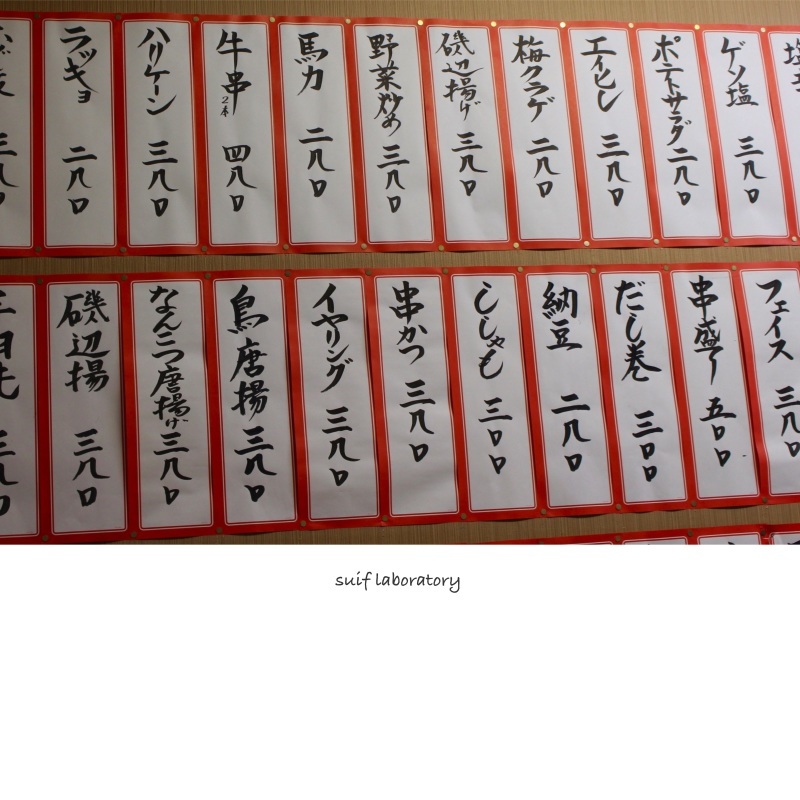 ゲソ塩 三八〇
ポテトサラダ 二八〇
エイヒレ 三八〇
梅クラゲ 二八〇
磯辺揚げ 三八〇
野菜炒め 三八〇
馬力 二八〇
牛串2本 四八〇
ハリケーン 三八〇
ラッキョ 二八〇
三八〇
フェイス 三八〇
串盛り 五〇〇
だし巻 三〇〇
納豆 二八〇
ししゃも 三〇〇
串かつ 三八〇
イヤリング 三八〇
鳥唐揚 三八〇
なんこつ唐揚げ 三八〇
磯辺揚 三八〇
三八〇
suif laboratory